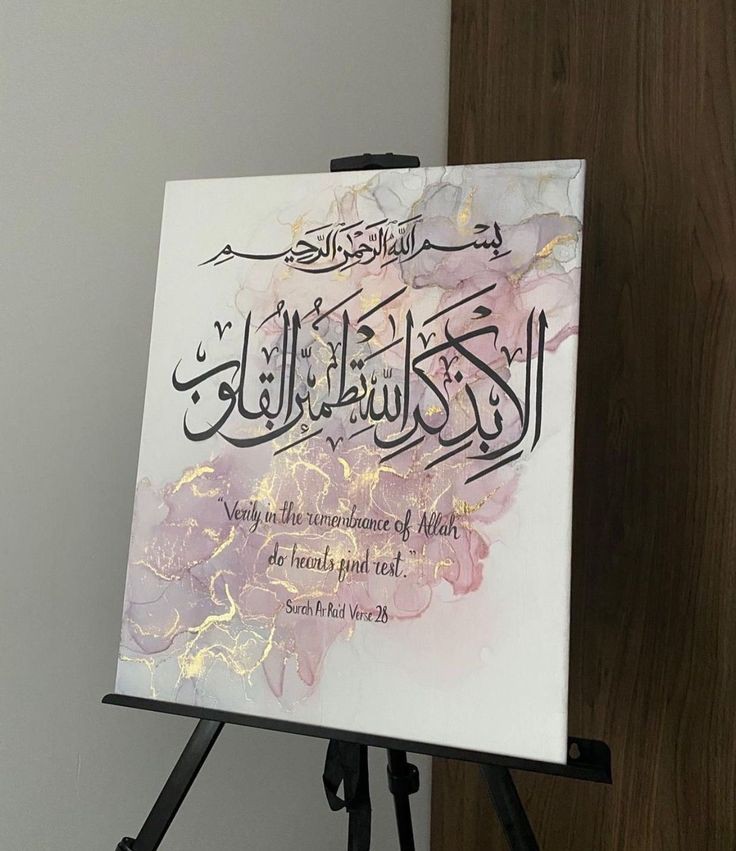 بِسْمِ اللَّهِ الرَّحْمَٰنِ الرَّحِيمِ
أَلَا بِذِكْرِ اللَّهِ تَطْمَئِنُّ الْقُلُوبُ
"Verily, in the remembrance of Allah
do hearts find rest."
Surah Ar Ra'd Verse 28